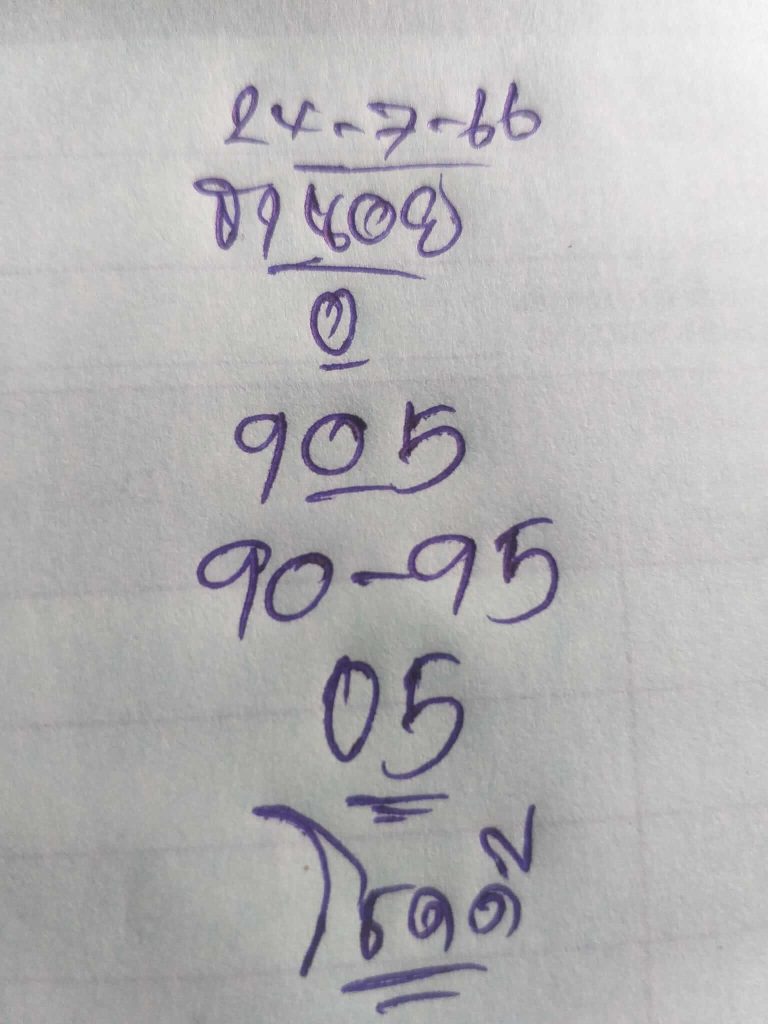 24-7-66
ฮานอย
0
905
90-95
05
โชคดี